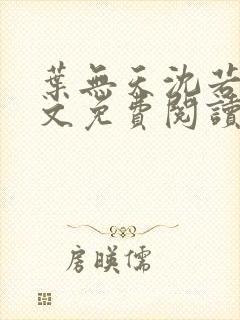 葉無天沈若
文免費閱讀
房暎儒